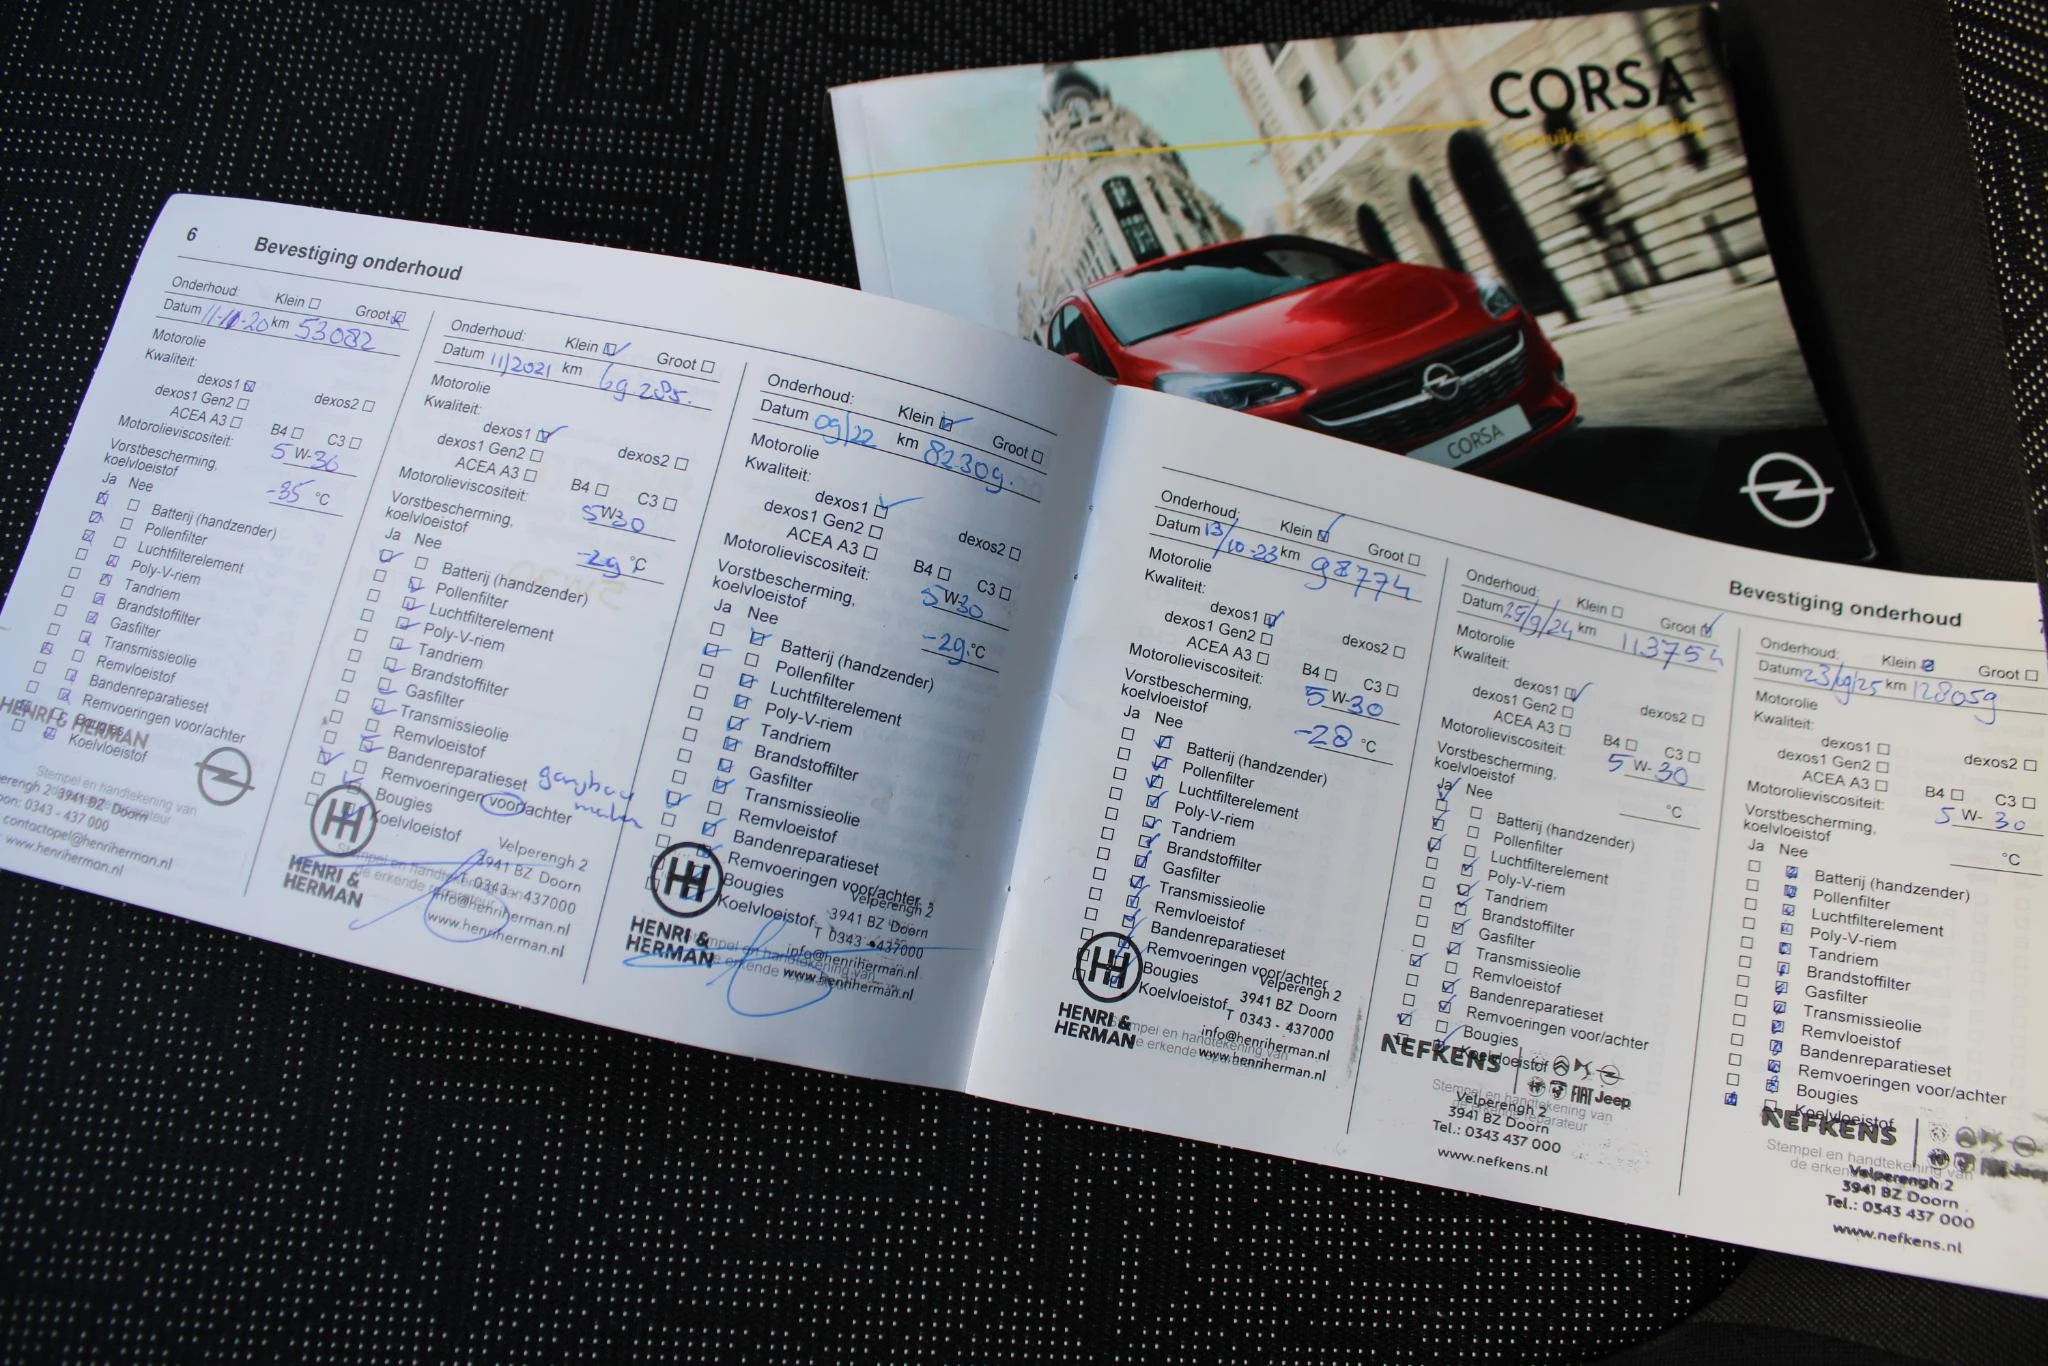 CORSA
CORSA
6
Bevestiging onderhoud
Onderhoud: Klein Groot
Datum 11-11-20 km 53082
Motorolie
Kwaliteit:
dexos1
dexos1 Gen2 dexos2
ACEA A3 B4 C3
Motorolieviscositeit: 5 W-30
Vorstbescherming,
koelvloeistof -35 °C
Ja Nee
Batterij (handzender)
Pollenfilter
Luchtfilterelement
Poly-V-riem
Tandriem
Brandstoffilter
Gasfilter
Transmissieolie
Remvloeistof
Bandenreparatieset
Remvoeringen voor/achter
Bougies
Koelvloeistof
HENRI & HERMAN
Stempel en handtekening van
3941 BZ Doorn
0343 - 437 000
contactopel@henriherman.nl
www.henriherman.nl
Onderhoud: Klein Groot
Datum 11/2021 km 69 285.
Motorolie
Kwaliteit:
dexos1
dexos1 Gen2 dexos2
ACEA A3 B4 C3
Motorolieviscositeit: 5 W 30
Vorstbescherming,
koelvloeistof -29 °C
Ja Nee
Batterij (handzender)
Pollenfilter
Luchtfilterelement
Poly-V-riem
Tandriem
Brandstoffilter
Gasfilter
Transmissieolie
Remvloeistof
Bandenreparatieset
Remvoeringen voor/achter
Bougies
Koelvloeistof
HENRI &
HERMAN
Velperengh 2
3941 BZ Doorn
T 0343 - 437000
info@henriherman.nl
www.henriherman.nl
Onderhoud: Klein Groot
Datum 09/22 km 82309.
Motorolie
Kwaliteit:
dexos1
dexos1 Gen2 dexos2
ACEA A3 B4 C3
Motorolieviscositeit: 5 W-30
Vorstbescherming,
koelvloeistof -29. °C
Ja Nee
Batterij (handzender)
Pollenfilter
Luchtfilterelement
Poly-V-riem
Tandriem
Brandstoffilter
Gasfilter
Transmissieolie
Remvloeistof
Bandenreparatieset
Remvoeringen voor/achter
Bougies
Koelvloeistof
HENRI &
HERMAN
Velperengh 2
3941 BZ Doorn
T 0343 - 437000
info@henriherman.nl
www.henriherman.nl
Stempel en handtekening van
de erkende reparateur
Onderhoud: Klein Groot
Datum 13/10-23 km 98774
Motorolie
Kwaliteit:
dexos1
dexos1 Gen2 dexos2
ACEA A3 B4 C3
Motorolieviscositeit: 5 W-30
Vorstbescherming,
koelvloeistof -28 °C
Ja Nee
Batterij (handzender)
Pollenfilter
Luchtfilterelement
Poly-V-riem
Tandriem
Brandstoffilter
Gasfilter
Transmissieolie
Remvloeistof
Bandenreparatieset
Remvoeringen voor/achter
Bougies
Koelvloeistof
HENRI &
HERMAN
Velperengh 2
3941 BZ Doorn
T 0343 - 437000
info@henriherman.nl
www.henriherman.nl
Bevestiging onderhoud
Onderhoud: Klein Groot
Datum 25/9/24 km 113754
Motorolie
Kwaliteit:
dexos1
dexos1 Gen2 dexos2
ACEA A3 B4 C3
Motorolieviscositeit: 5 W-30
Vorstbescherming,
koelvloeistof °C
Ja Nee
Batterij (handzender)
Pollenfilter
Luchtfilterelement
Poly-V-riem
Tandriem
Brandstoffilter
Gasfilter
Transmissieolie
Remvloeistof
Bandenreparatieset
Remvoeringen voor/achter
Bougies
Koelvloeistof
NEFKENS
FIAT Jeep
Stempel en handtekening van
de erkende reparateur
Velperengh 2
3941 BZ Doorn
Tel.: 0343 437 000
www.nefkens.nl
Onderhoud: Klein Groot
Datum 23/ /25 km 128059
Motorolie
Kwaliteit:
dexos1
dexos1 Gen2 dexos2
ACEA A3 B4 C3
Motorolieviscositeit: 5 W- 30
Vorstbescherming,
koelvloeistof °C
Ja Nee
Batterij (handzender)
Pollenfilter
Luchtfilterelement
Poly-V-riem
Tandriem
Brandstoffilter
Gasfilter
Transmissieolie
Remvloeistof
Bandenreparatieset
Remvoeringen voor/achter
Bougies
Koelvloeistof
NEFKENS
Jeep
Stempel en handtekening van
de erkende
Velperengh 2
3941 BZ Doorn
Tel.: 0343 437 000
www.nefkens.nl